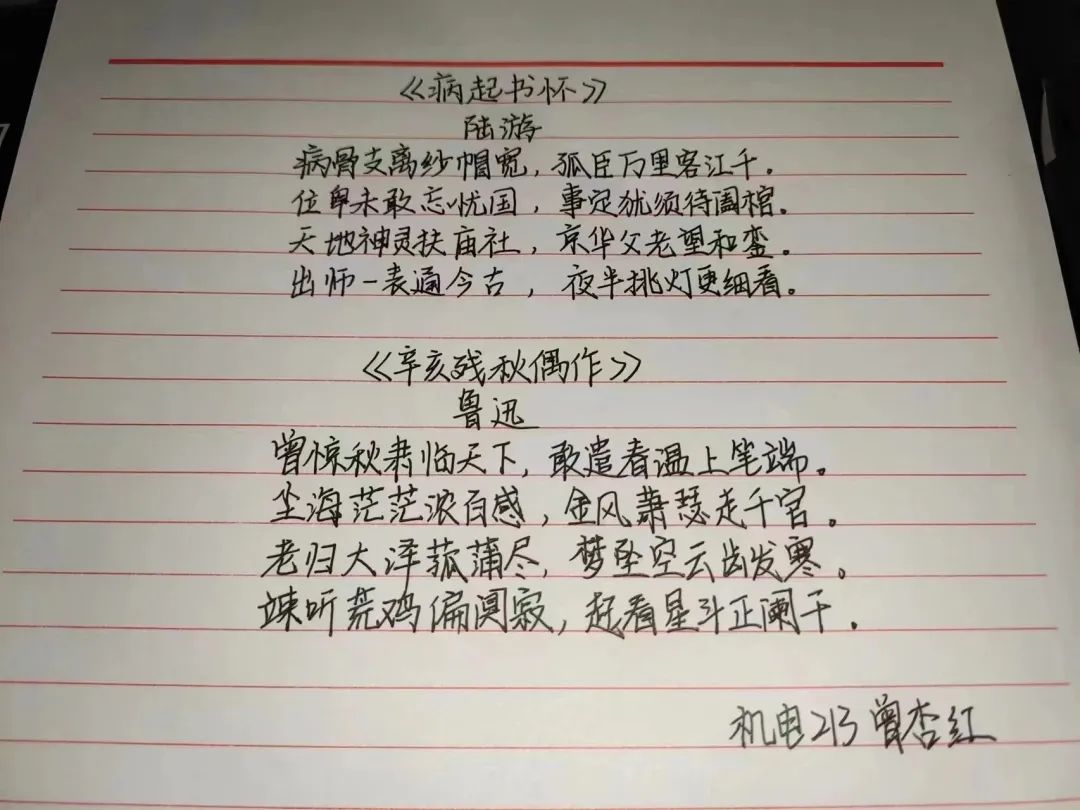 《病起书怀》
陆游
病骨支离纱帽宽，孤臣万里客江干。
位卑未敢忘忧国，事定犹须待阖棺。
天地神灵扶庙社，京华父老望和銮。
出师一表通今古，夜半挑灯更细看。
《辛亥残秋偶作》
鲁迅
曾惊秋肃临天下，敢遣春温上笔端。
尘海茫茫沉百感，金风萧瑟走千官。
老归大泽菰蒲尽，梦坠空云齿发寒。
竦听荒鸡偏阒寂，起看星斗正阑干。
机电213 曾杏红